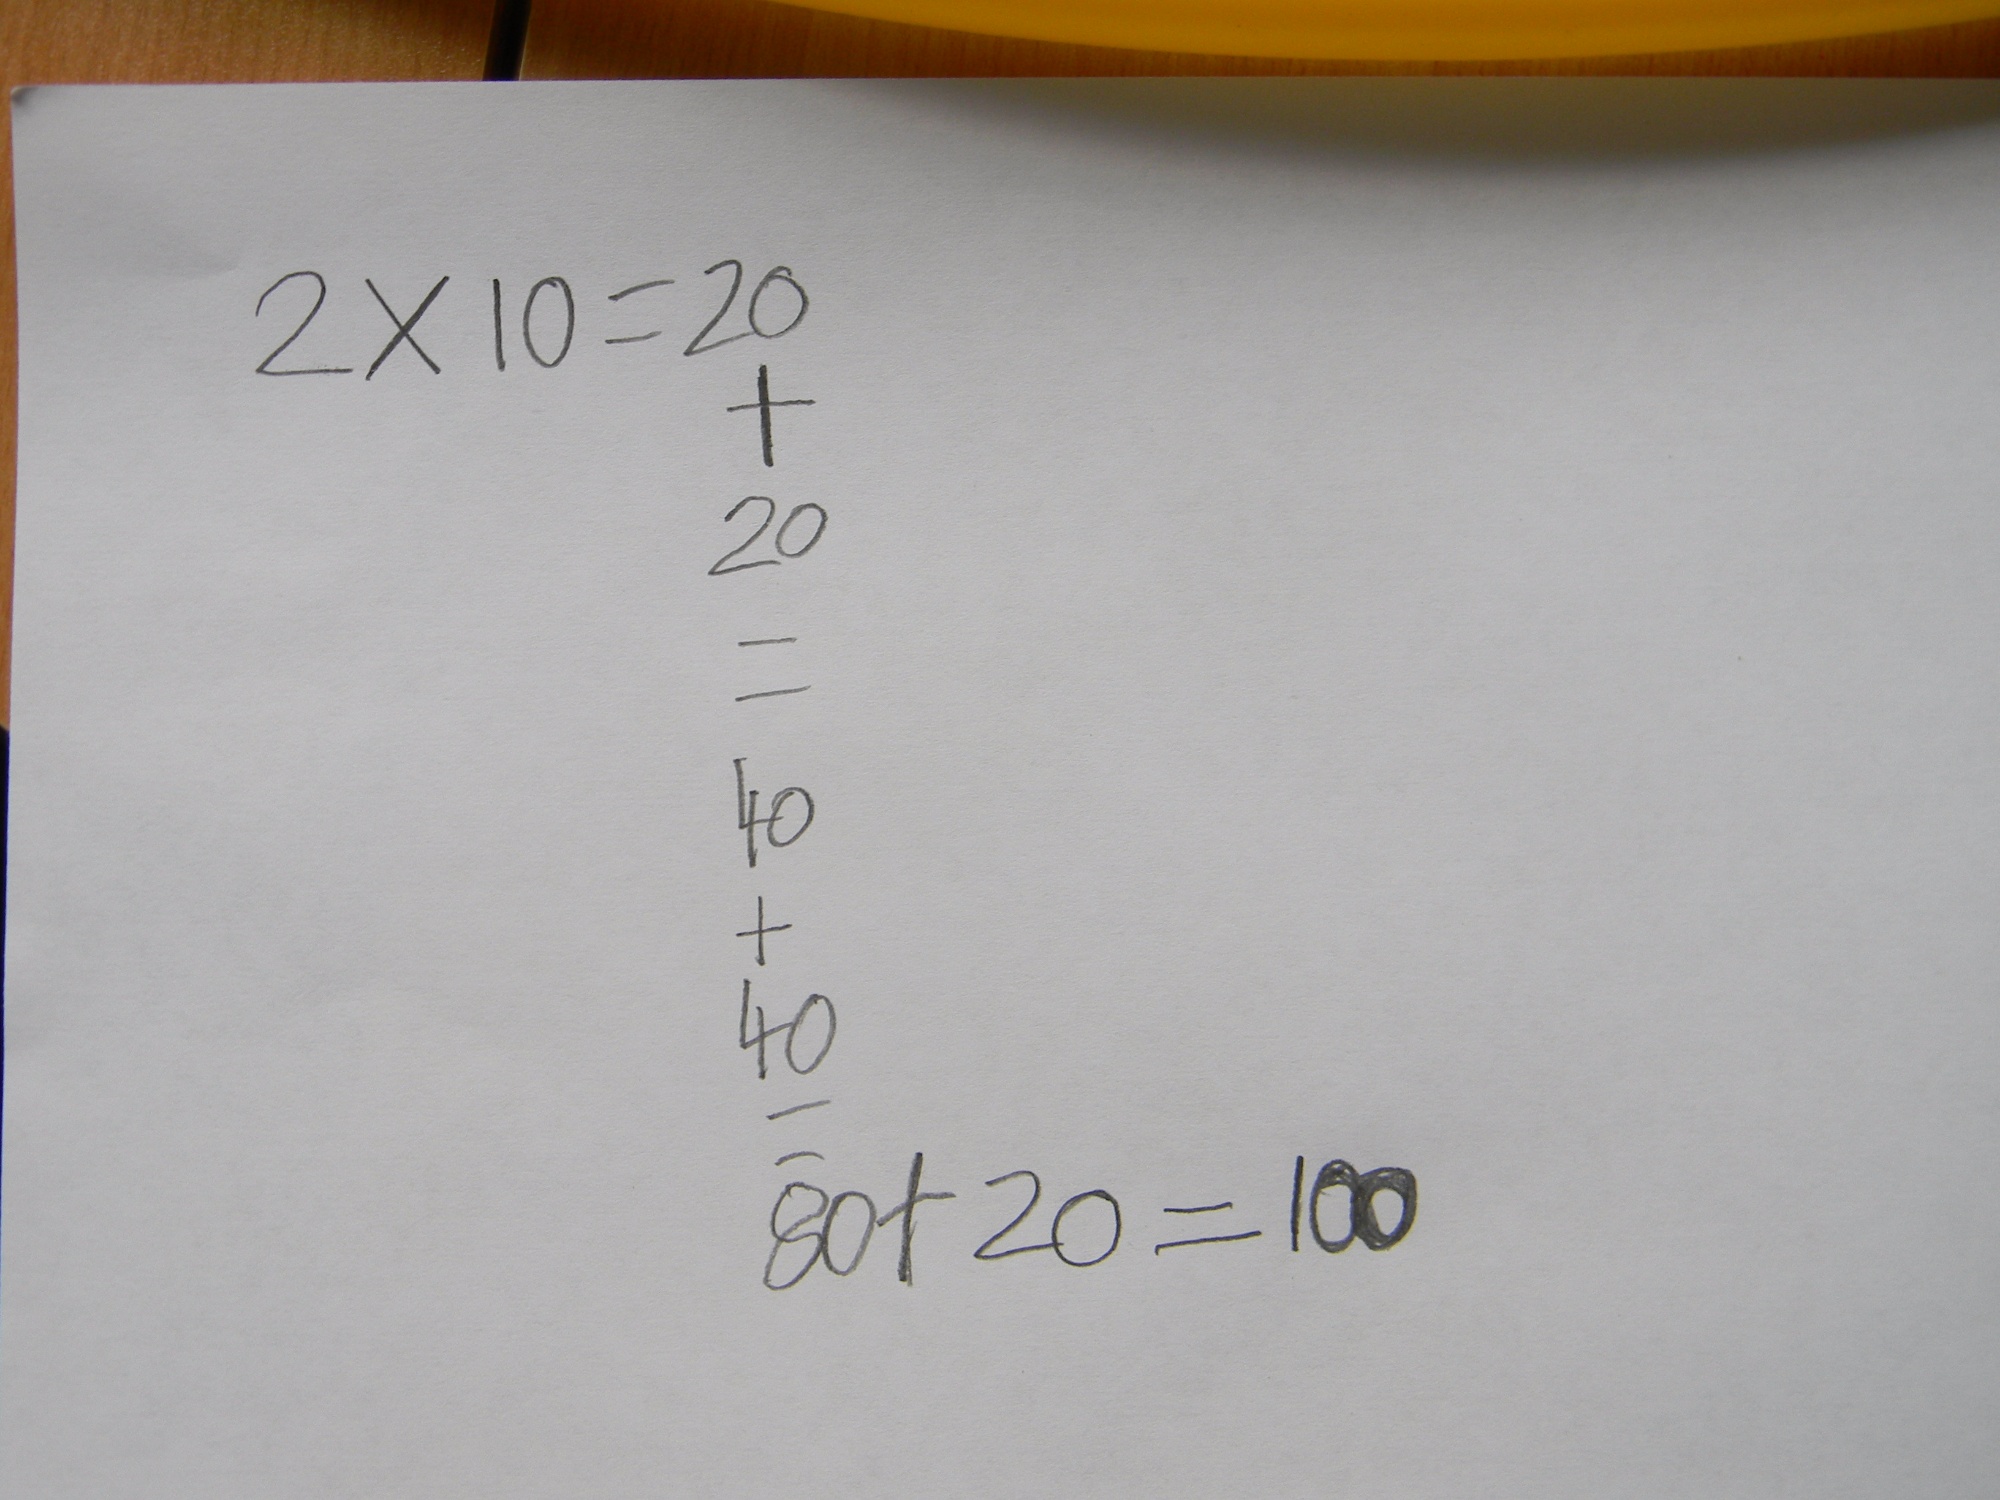 2 X 10 = 20
+
20
=
40
+
40
=
80 + 20 = 100